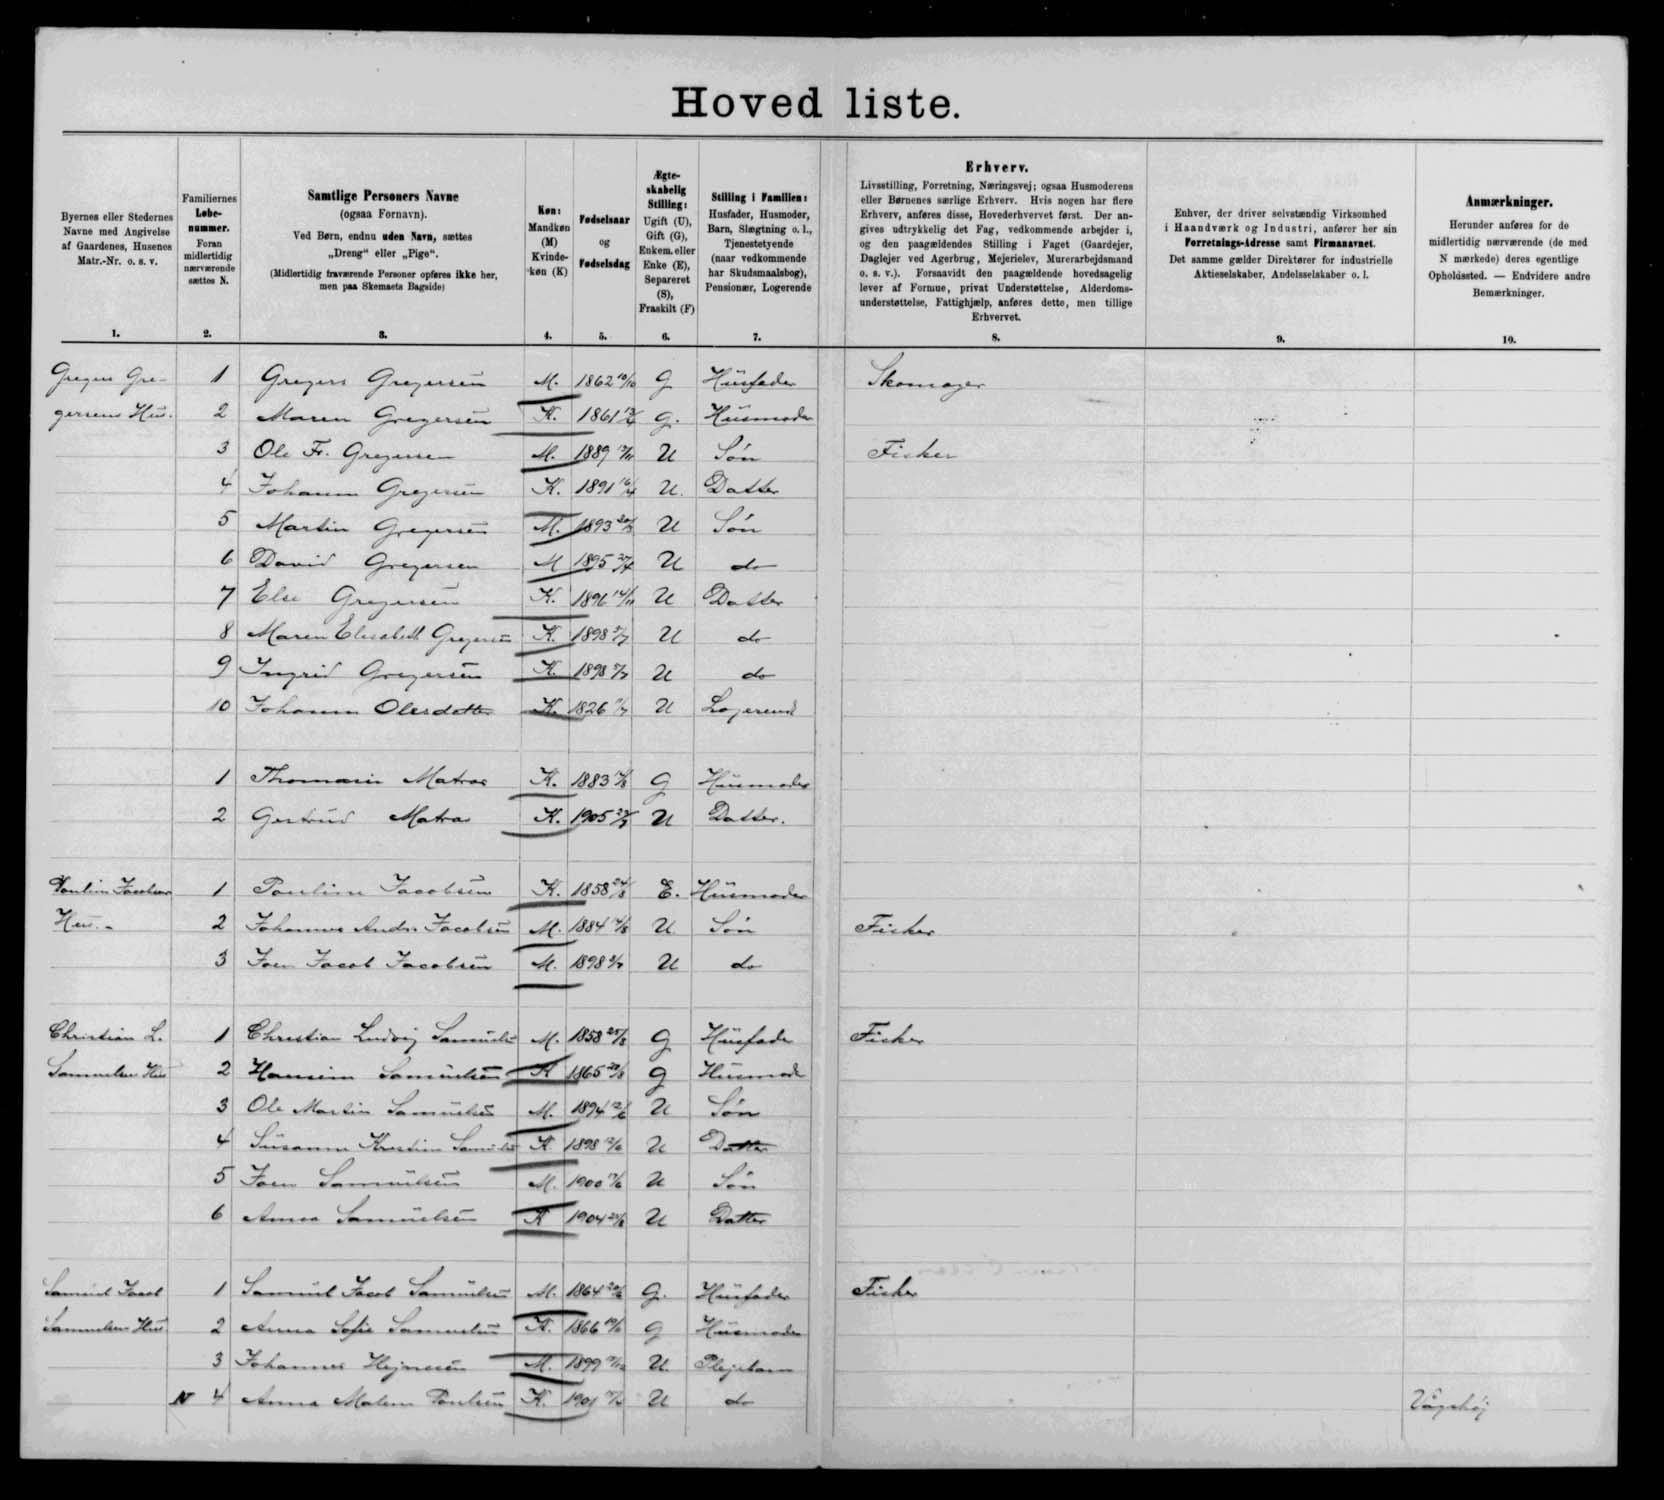 Hoved liste.
Byernes eller Stedernes
Navne med Angivelse
af Gaardenes, Husenes
Matr.-Nr. o. s. v.
1.
Familiernes
Løbe-
nummer.
Foran
midlertidig
nærværende
sættes N.
2.
Samtlige Personers Navne
(ogsaa Fornavn).
Ved Børn, endnu uden Navn, sættes
„Dreng“ eller „Pige“.
(Midlertidig fraværende Personer opføres ikke her,
men paa Skemaets Bagside)
3.
Køn:
Mandkøn
(M)
Kvinde-
køn (K)
4.
Fødselsaar
og
Fødselsdag
5.
Ægte-
skabelig
Stilling:
Ugift (U),
Gift (G),
Enkem. eller
Enke (E),
Separeret
(S),
Fraskilt (F)
6.
Stilling i Familien:
Husfader, Husmoder,
Barn, Slægtning o. l.,
Tjenestetyende
(naar vedkommende
har Skudsmaalsbog),
Pensionær, Logerende
7.
Erhverv.
Livsstilling, Forretning, Næringsvej; ogsaa Husmoderens
eller Børnenes særlige Erhverv. Hvis nogen har flere
Erhverv, anføres disse, Hovederhvervet først. Der an-
gives udtrykkelig det Fag, vedkommende arbejder i,
og den paagældendes Stilling i Faget (Gaardejer,
Daglejer ved Agerbrug, Mejerielev, Murerarbejdsmand
o. s. v.). Forsaavidt den paagældende hovedsagelig
lever af Formue, privat Understøttelse, Alderdoms-
understøttelse, Fattighjælp, anføres dette, men tillige
Erhvervet.
8.
Enhver, der driver selvstændig Virksomhed
i Haandværk og Industri, anfører her sin
Forretnings-Adresse samt Firmanavnet.
Det samme gælder Direktører for industrielle
Aktieselskaber, Andelsselskaber o. l.
9.
Anmærkninger.
Herunder anføres for de
midlertidig nærværende (de med
N mærkede) deres egentlige
Opholdssted. — Endvidere andre
Bemærkninger.
10.
Gregers Gre- 1 Gregers Gregersen M. 1862 G Husfader Skomager
gersens Hus. 2 Maren Gregersen K. 1861 G. Husmoder
3 Ole Fr. Gregersen M. 1889 U Søn Fisker
4 Johanne Gregersen K. 1891 U. Datter
5 Martin Gregersen M. 1893 U Søn
6 David Gregersen M 1895 U do
7 Else Gregersen K. 1896 U Datter
8 Maren Elisabeth Gregersen K. 1898 U do
9 Ingrid Gregersen K. 1898 U do
10 Johanne Olesdatter K. 1826 U Logerend
1 Thomasine Matras K. 1883 G Husmoder
2 Gertrud Matras K. 1905 U Datter.
Pouline Jacobsens 1 Pouline Jacobsen K. 1858 E. Husmoder
Hus. 2 Johannes Andr. Jacobsen M. 1884 U Søn Fisker
3 Joen Jacob Jacobsen M. 1898 U do
Christian L. 1 Christian Ludvig Samuelsen M. 1858 G Husfader Fisker
Samuelsen Hus 2 Hansine Samuelsen K 1865 G Husmoder
3 Ole Martin Samuelsen M. 1894 U Søn
4 Susanne Kristine Samuelsen K 1898 U Datter
5 Joen Samuelsen M. 1900 U Søn
6 Anna Samuelsen K 1904 U Datter
Samuel Jacob 1 Samuel Jacob Samuelsen M. 1864 G. Husfader Fisker
Samuelsen Hus 2 Anna Sofie Samuelsen K. 1866 G Husmoder
3 Johannes Hejnesen M. 1899 U Plejebarn
N 4 Anna Malene Poulsen K. 1901 U do